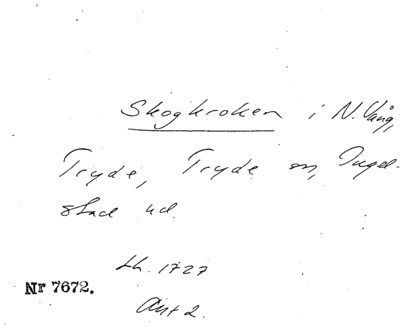 Skogkroken i N. Vång,
Tryde, Tryde sn, Ingel-
stad hd.
Lh. 1727
Akt 2.
Nr 7672.